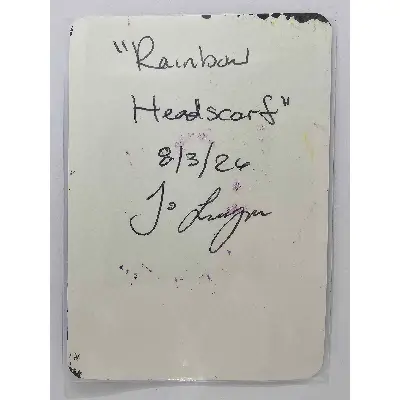 "Rainbow
Headscarf"
8/3/26
Jo